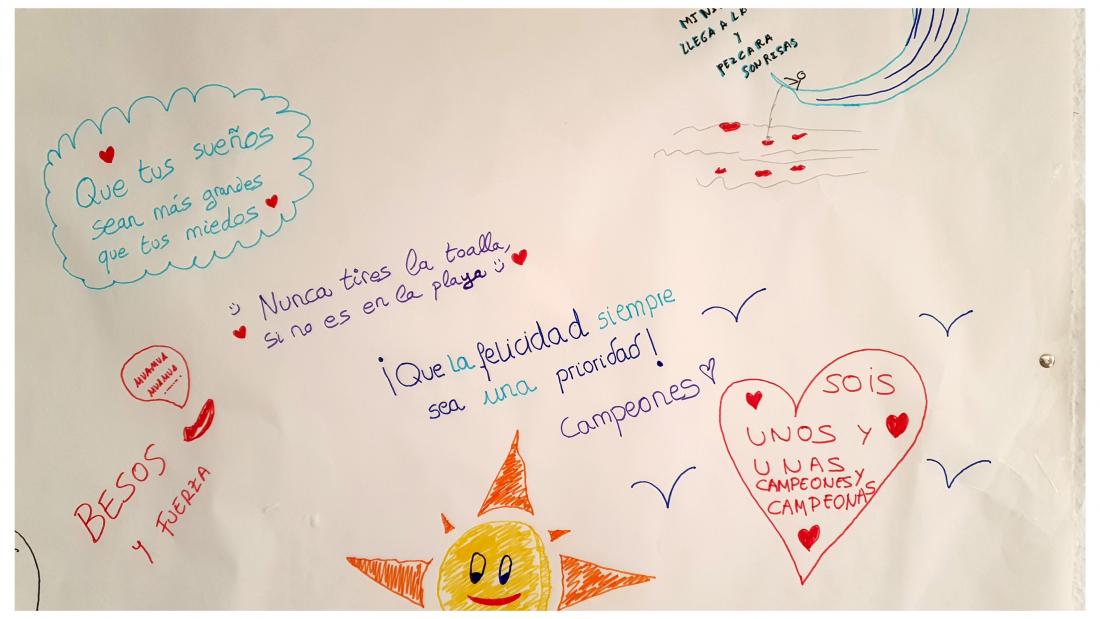 LLEGA A LA
Y
PEZCARA
SONRISAS
Que tus sueños
sean más grandes
que tus miedos
Nunca tires la toalla,
si no es en la playa
¡Que la felicidad siempre
sea una prioridad!
Campeones
MUAMUA
MUAMUA
BESOS
y FUERZA
SOIS
UNOS Y
UNAS
CAMPEONES Y
CAMPEONAS